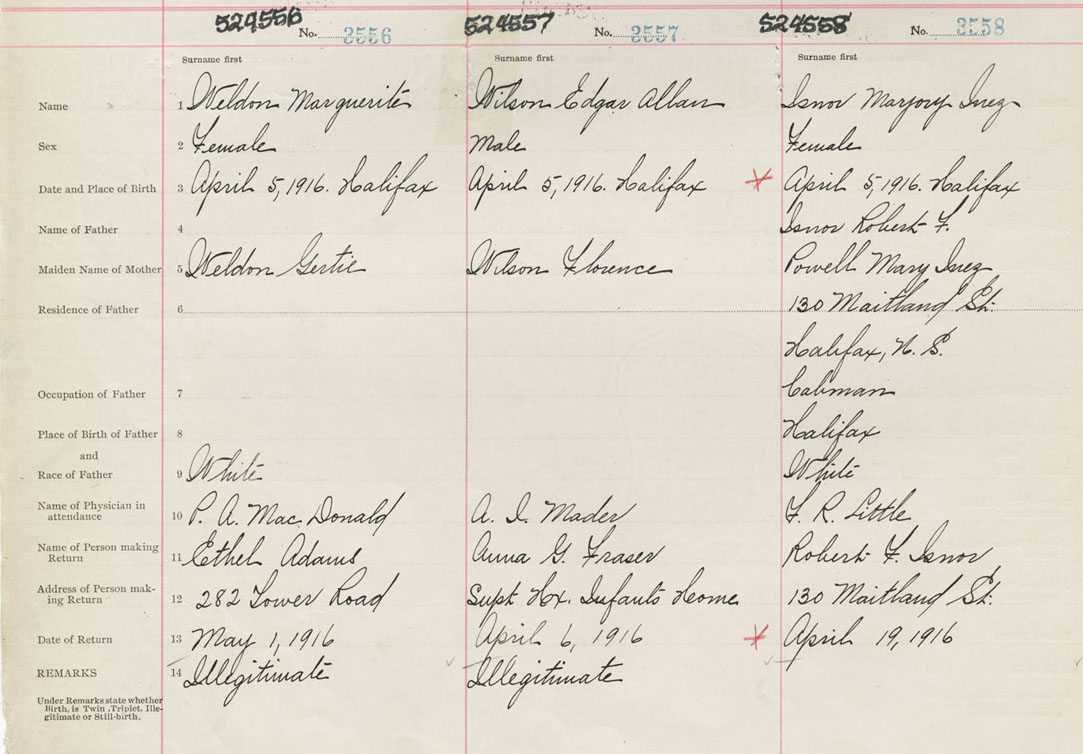 524556 No. 3556 524557 No. 3557 524558 No. 3558
Surname first Surname first Surname first
Name 1 Weldon Marguerite Wilson Edgar Allan Isnor Marjory Inez
Sex 2 Female Male Female
Date and Place of Birth 3 April 5, 1916. Halifax April 5, 1916. Halifax April 5, 1916. Halifax
Name of Father 4 Isnor Robert F.
Maiden Name of Mother 5 Weldon Gertie Wilson Florence Powell Mary Inez
Residence of Father 6 130 Maitland St.
Halifax, N. S.
Occupation of Father 7 Cabman
Place of Birth of Father 8 Halifax
and
Race of Father 9 White White
Name of Physician in
attendance 10 P. A. Mac Donald A. I. Mader F. R. Little
Name of Person making
Return 11 Ethel Adams Anna G. Fraser Robert F. Isnor
Address of Person mak-
ing Return 12 282 Tower Road Supt Hx. Infants Home 130 Maitland St.
Date of Return 13 May 1, 1916 April 6, 1916 April 19, 1916
REMARKS 14 Illegitimate Illegitimate
Under Remarks state whether
Birth, is Twin, Triplet, Ille-
gitimate or Still-birth.